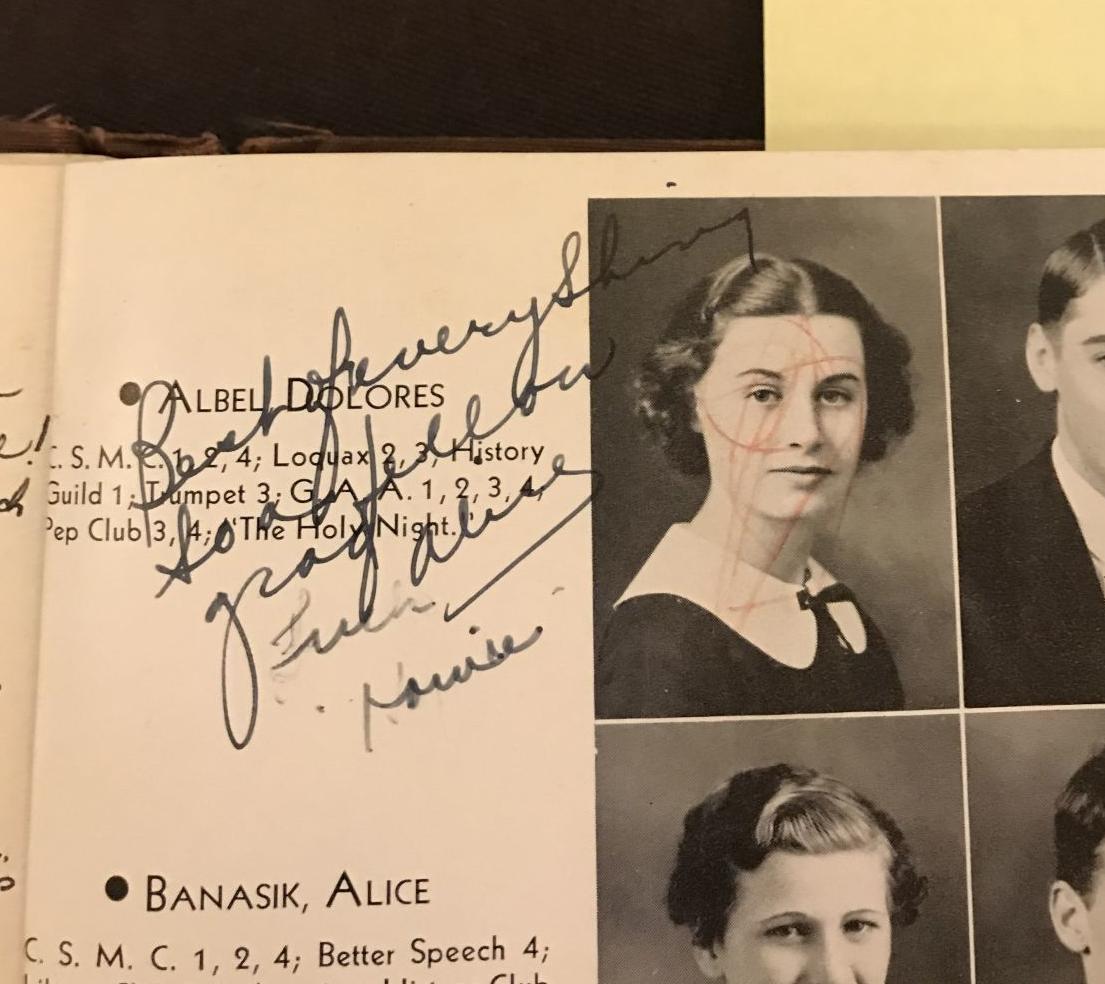 Best of everything
to a fellow
grad
Louise
ALBEL, DOLORES
C. S. M. C. 1, 2, 4; Loquax 2, 3; History
Guild 1; Trumpet 3; G. A. A. 1, 2, 3, 4;
Pep Club 3, 4; "The Holy Night."
BANASIK, ALICE
C. S. M. C. 1, 2, 4; Better Speech 4;
Club